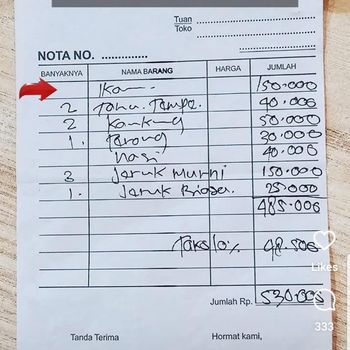 Tuan
Toko
NOTA NO.
BANYAKNYA NAMA BARANG HARGA JUMLAH
Ikan 150.000
2 Tahu. Tempe. 40.000
2 Kangkung 50.000
1. Terong 30.000
Nasi 40.000
3 Jeruk Murni 150.000
1. Jeruk Biasa. 25.000
485.000
10% 48.500
Jumlah Rp. 530.000
Tanda Terima Hormat kami,
Likes
333